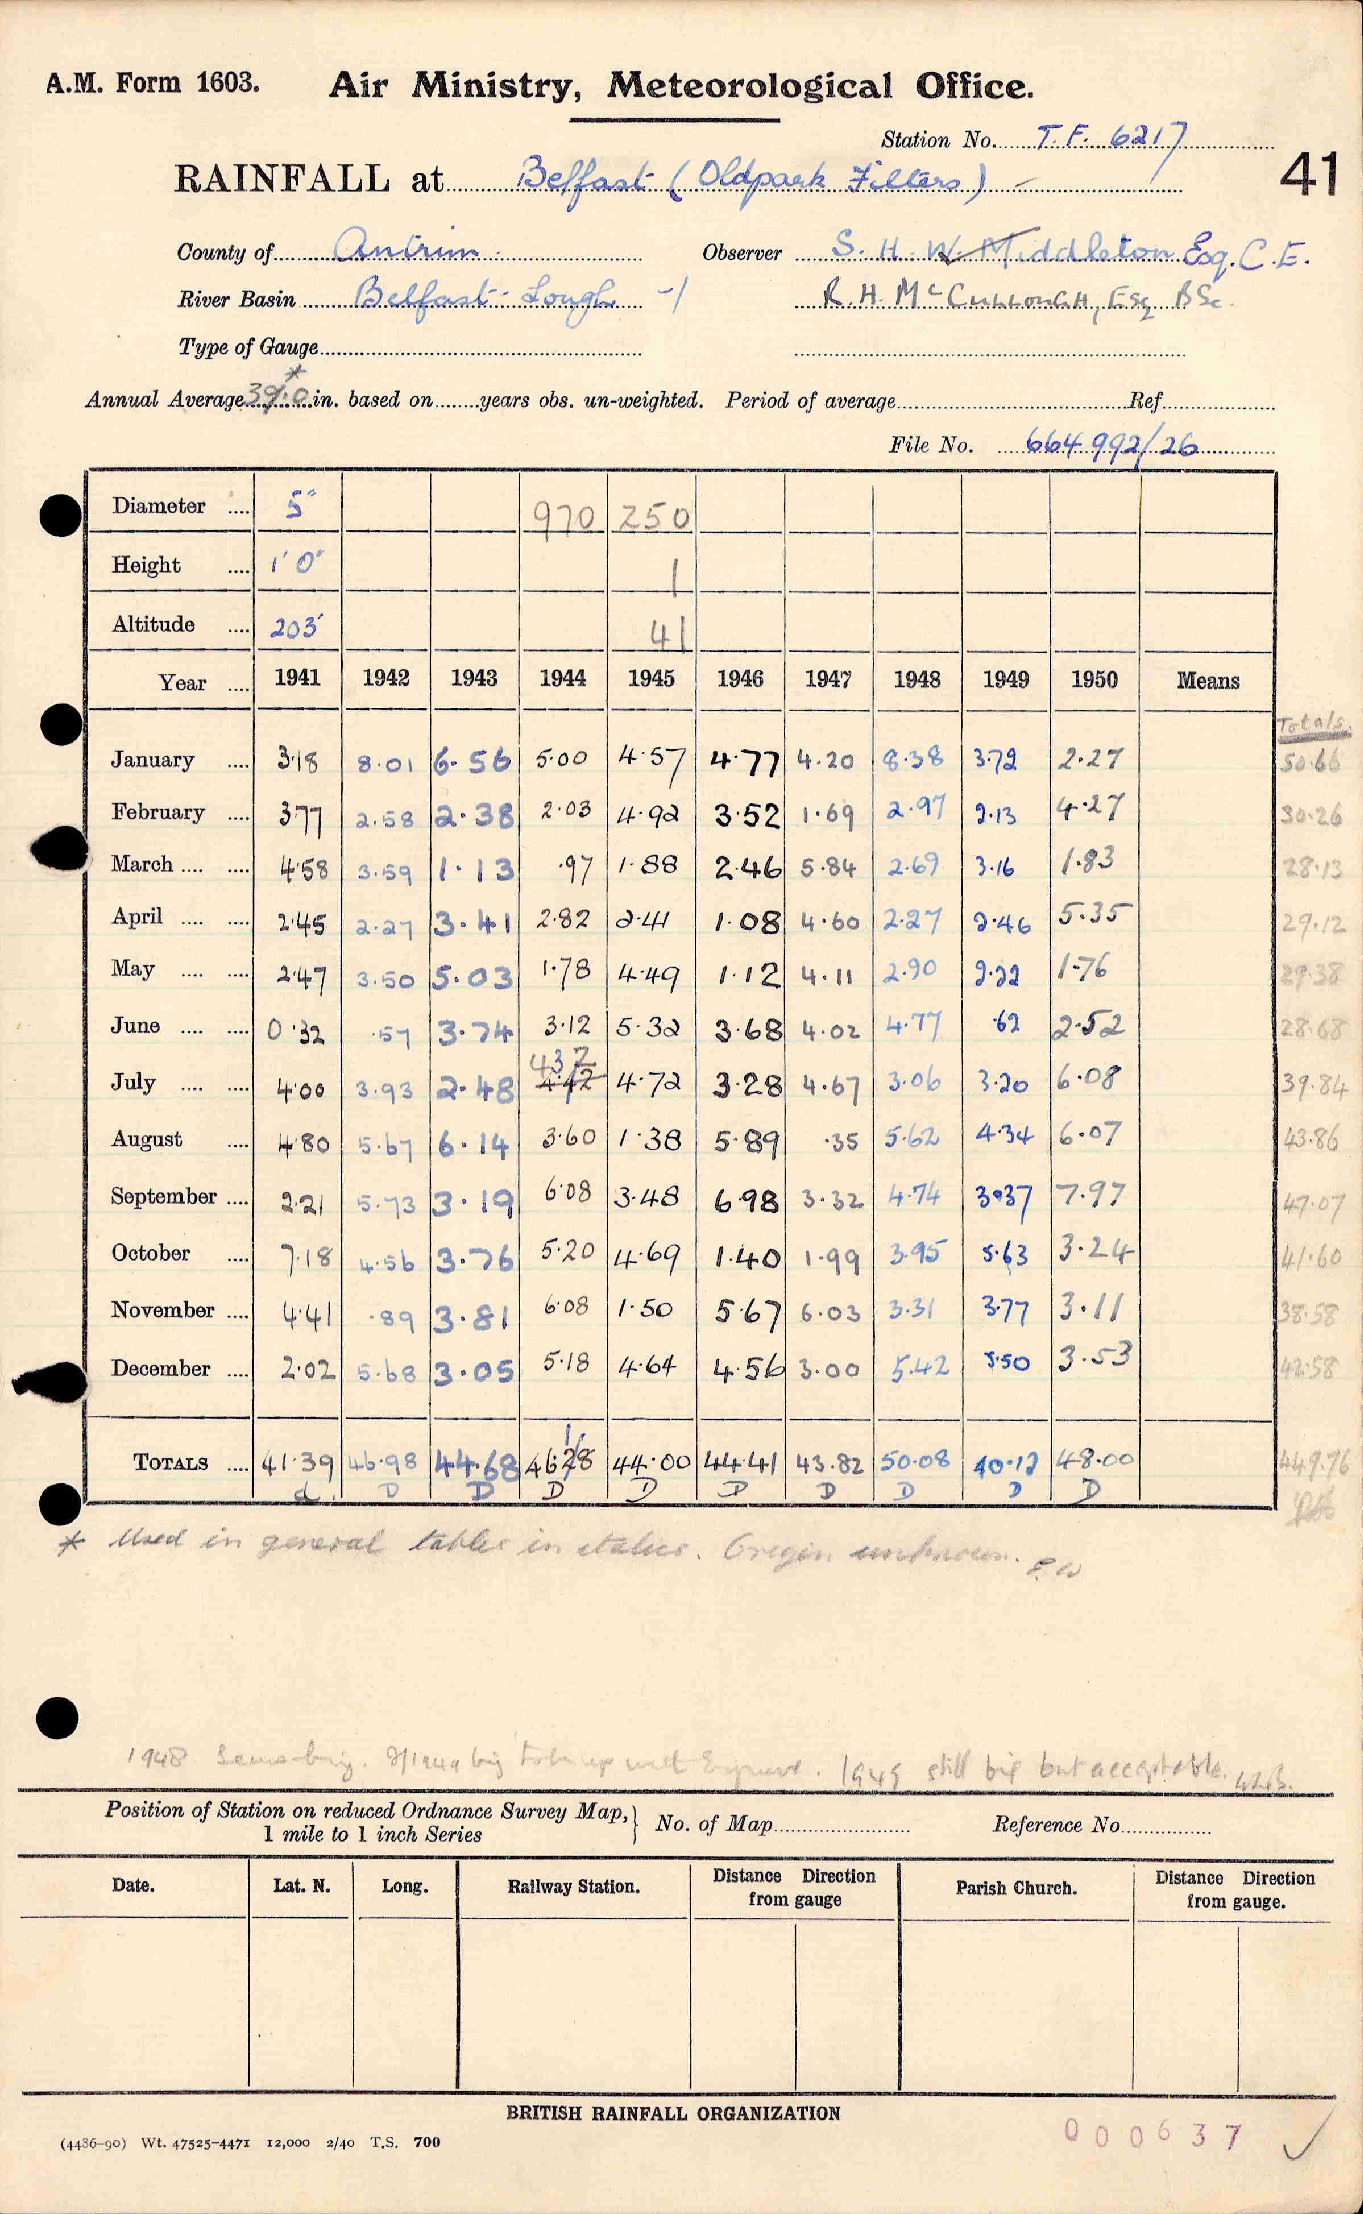 A.M. Form 1603. Air Ministry, Meteorological Office.
Station No. T.F. 6217
RAINFALL at Belfast (Oldpark Filters) –
41
County of Antrim. Observer S. H. W. Middleton Esq. C.E.
River Basin Belfast Lough –1 R.H. McCullough, Esq BSc.
Type of Gauge
Annual Average 39.0* in. based on ........ years obs. un-weighted. Period of average Ref
File No. 664992/26
Diameter .... 5" 970 250
Height .... 1' 0" 1
Altitude .... 203' 41
Year .... 1941 1942 1943 1944 1945 1946 1947 1948 1949 1950 Means
Totals.
January .... 3.18 8.01 6.56 5.00 4.57 4.77 4.20 8.38 3.72 2.27 50.66
February .... 3.77 2.58 2.38 2.03 4.92 3.52 1.69 2.97 2.13 4.27 30.26
March .... .... 4.58 3.59 1.13 .97 1.88 2.46 5.84 2.69 3.16 1.83 28.13
April .... .... 2.45 2.27 3.41 2.82 2.41 1.08 4.60 2.27 2.46 5.35 29.12
May .... .... 2.47 3.50 5.03 1.78 4.49 1.12 4.11 2.90 2.22 1.76 29.38
June .... .... 0.32 .57 3.74 3.12 5.32 3.68 4.02 4.77 .62 2.52 28.68
4.32
July .... .... 4.00 3.93 2.48 4.42 4.72 3.28 4.67 3.06 3.20 6.08 39.84
August .... 4.80 5.67 6.14 3.60 1.38 5.89 .35 5.62 4.34 6.07 43.86
September .... 2.21 5.73 3.19 6.08 3.48 6.98 3.32 4.74 3.37 7.97 47.07
October .... 7.18 4.56 3.76 5.20 4.69 1.40 1.99 3.95 5.63 3.24 41.60
November .... 4.41 .89 3.81 6.08 1.50 5.67 6.03 3.31 3.77 3.11 38.58
December .... 2.02 5.68 3.05 5.18 4.64 4.56 3.00 5.42 5.50 3.53 42.58
1
TOTALS .... 41.39 46.98 44.68 46.28 44.00 44.41 43.82 50.08 40.12 48.00 449.76
d. D D D D D D D D D
* Used in general tables in italics. Origin unknown. P.W
1948 big. big but 1949 still big but acceptable.
Position of Station on reduced Ordnance Survey Map,} No. of Map Reference No.
1 mile to 1 inch Series
Date. Lat. N. Long. Railway Station. Distance from gauge Direction Parish Church. Distance Direction from gauge.
BRITISH RAINFALL ORGANIZATION
(4486-90) Wt. 47525-4471 12,000 2/40 T.S. 700
000637